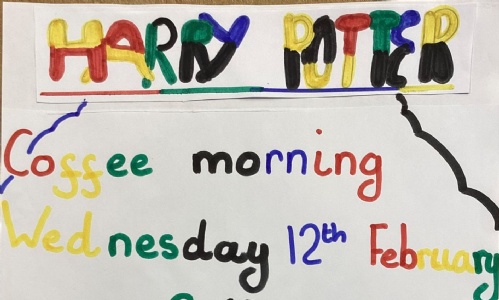 HARRY POTTER
Coffee morning
Wednesday 12th February